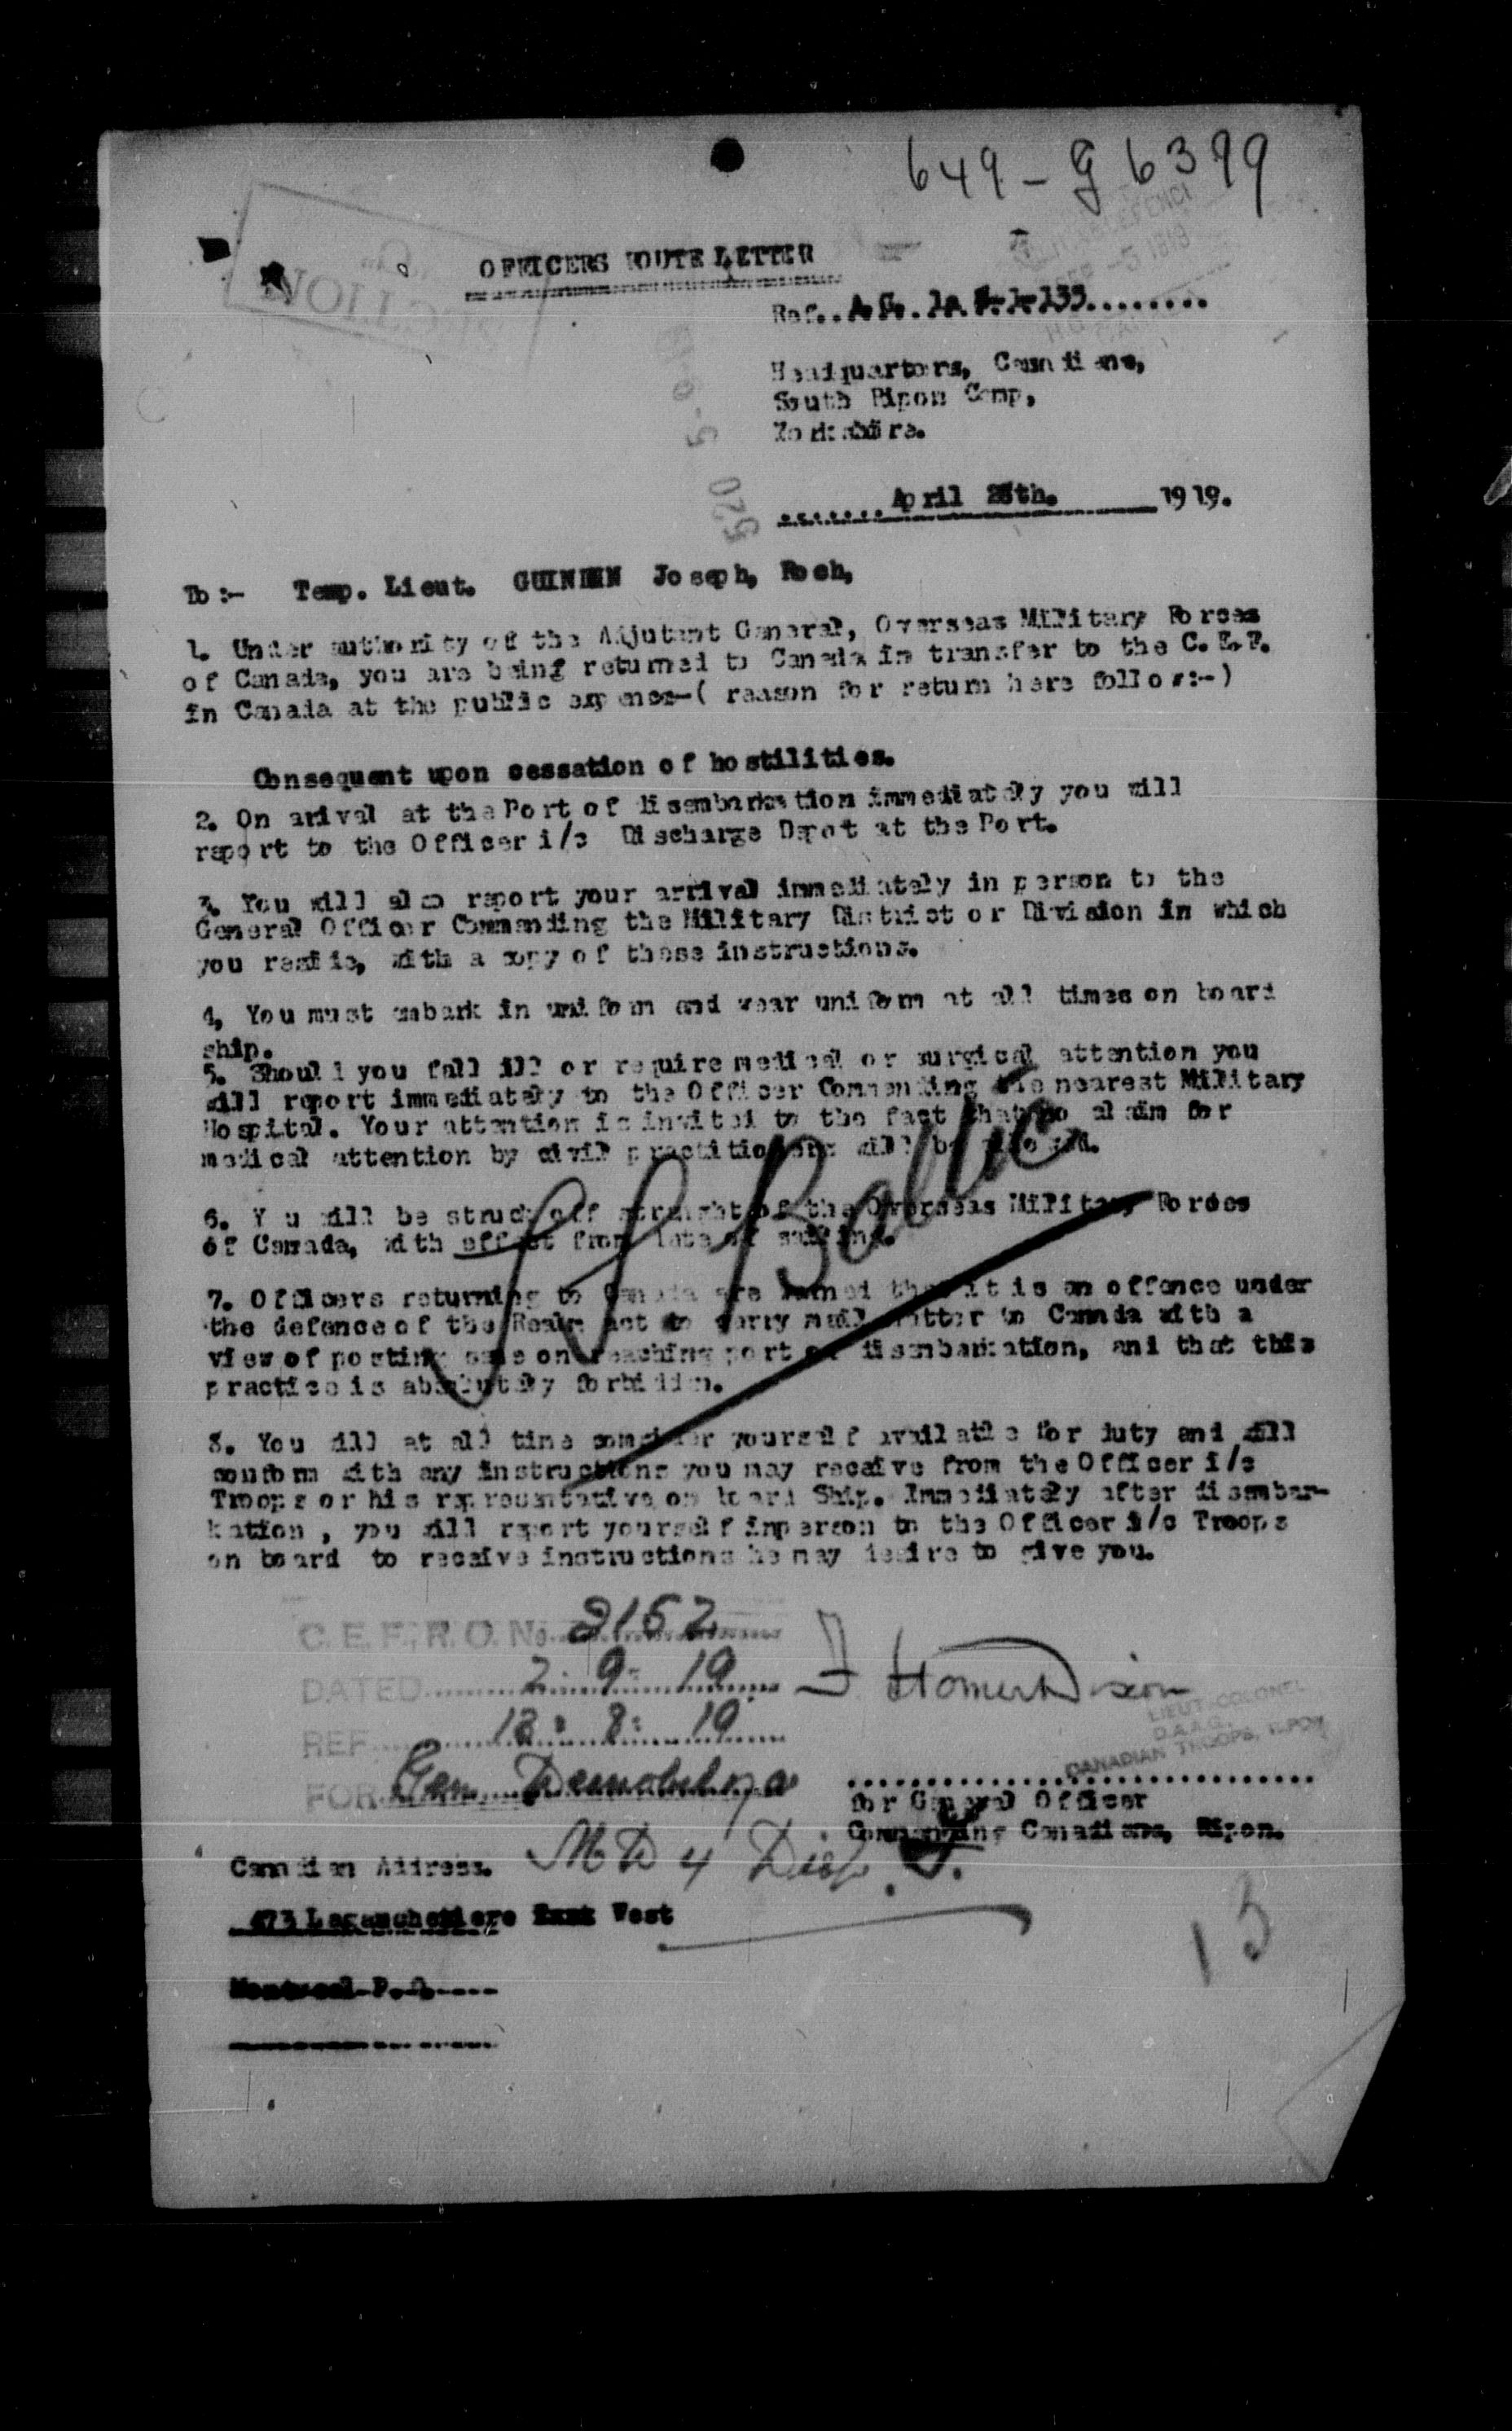 649-G 6399
OFFICERS ROUTE LETTER
Ref..A.G.1a.
Headquarters, Canadians,
South Ripon Camp,
Yorkshire.
April 1919.
To:- Temp. Lieut. Joseph, Roch,
1. Under authority of the Adjutant General, Overseas Military Forces
of Canada, you are being returned to Canada in transfer to the C.E.F.
in Canada at the public expense-( reason for return here follow:-)
Consequent upon cessation of hostilities.
2. On arival at the Port of disembarkation immediately you will
report to the Officer i/c Discharge Depot at the Port.
3. You will also report your arrival immediately in person to the
General Officer Commanding the Military District or Division in which
you reside, with a copy of these instructions.
4, You must embark in uniform and wear uniform at all times on board
ship.
5. Should you fall ill or require medical or surgical attention you
will report immediately to the Officer Commanding the nearest Military
Hospital. Your attention is invited to the fact that no claim for
medical attention by civil practitioners will be
6. You will be struck off strenght of the Overseas Military Forces
of Canada, with effect from date of sailing.
7. Officers returning to Canada are warned that it is an offence under
the defence of the Realm Act to carry mail matter to Canada with a
view of posting same on reaching port of disembarkation, and that this
practice is absolutely forbidden.
8. You will at all time consider yourself available for duty and will
conform with any instructions you may receive from the Officer i/c
Troops or his representative on board Ship. Immediately after disembar-
kation, you will report yourself inperson to the Officer i/c Troops
on board to receive instructions he may desire to give you.
C.E.F., R.O. No. 2152
DATED 2-9-19
REF 18-8-19
FOR Gen Demobilzn
LIEUT-COLONEL
D.A.A.G.
CANADIAN TROOPS, RIPON
for General Officer
Commanding Canadians, Ripon.
Canadian Address. MD 4 Disp.
473 Lagauchetiere East West
Montreal P.Q.
13